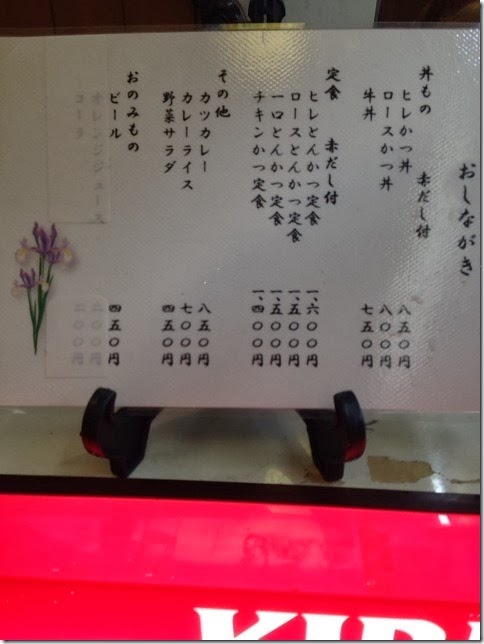 おしながき
丼もの　赤だし付
ヒレかつ丼　八五〇円
ロースかつ丼　八〇〇円
牛丼　七五〇円
定食　赤だし付
ヒレとんかつ定食　一、六〇〇円
ロースとんかつ定食　一、五〇〇円
一口とんかつ定食　一、五〇〇円
チキンかつ定食　一、四〇〇円
その他
カツカレー　八五〇円
カレーライス　七〇〇円
野菜サラダ　四五〇円
おのみもの
ビール　四五〇円
オレンジジュース　二〇〇円
コーラ　二〇〇円